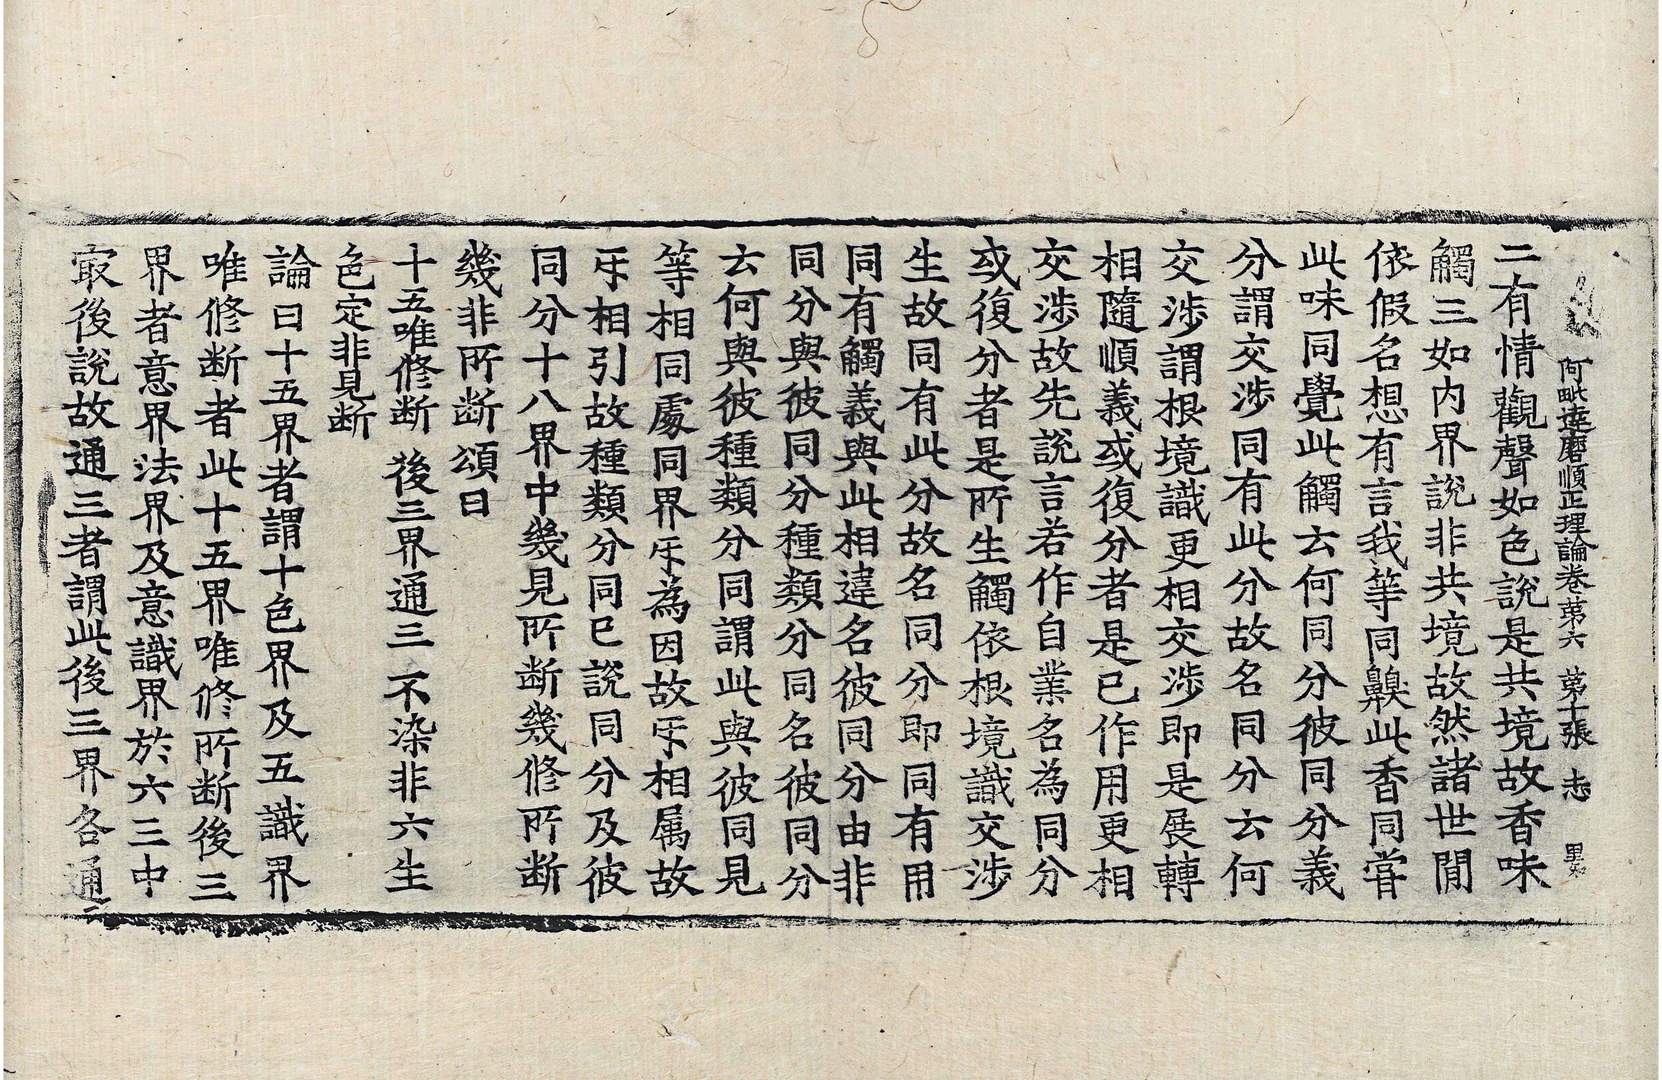 阿毗達磨順正理論卷第六 第十張 志
二有情觀聲如色說是共境故香味
觸三如内界說非共境故然諸世間
依假名想有言我等同齅此香同嘗
此味同覺此觸云何同分彼同分義
分謂交渉同有此分故名同分云何
交渉謂根境識更相交渉即是展轉
相隨順義或復分者是已作用更相
交渉故先說言若作自業名為同分
或復分者是所生觸依根境識交渉
生故同有此分故名同分即同有用
同有觸義與此相違名彼同分由非
同分與彼同分種類分同名彼同分
云何與彼種類分同謂此與彼同見
等相同處同界㸦為因故㸦相属故
㸦相引故種類分同已說同分及彼
同分十八界中幾見所断幾修所断
幾非所断頌曰
十五唯修断 後三界通三 不染非六生
色定非見断
論曰十五界者謂十色界及五識界
唯修断者此十五界唯修所断後三
界者意界法界及意識界於六三中
㝡後說故通三者謂此後三界各通三